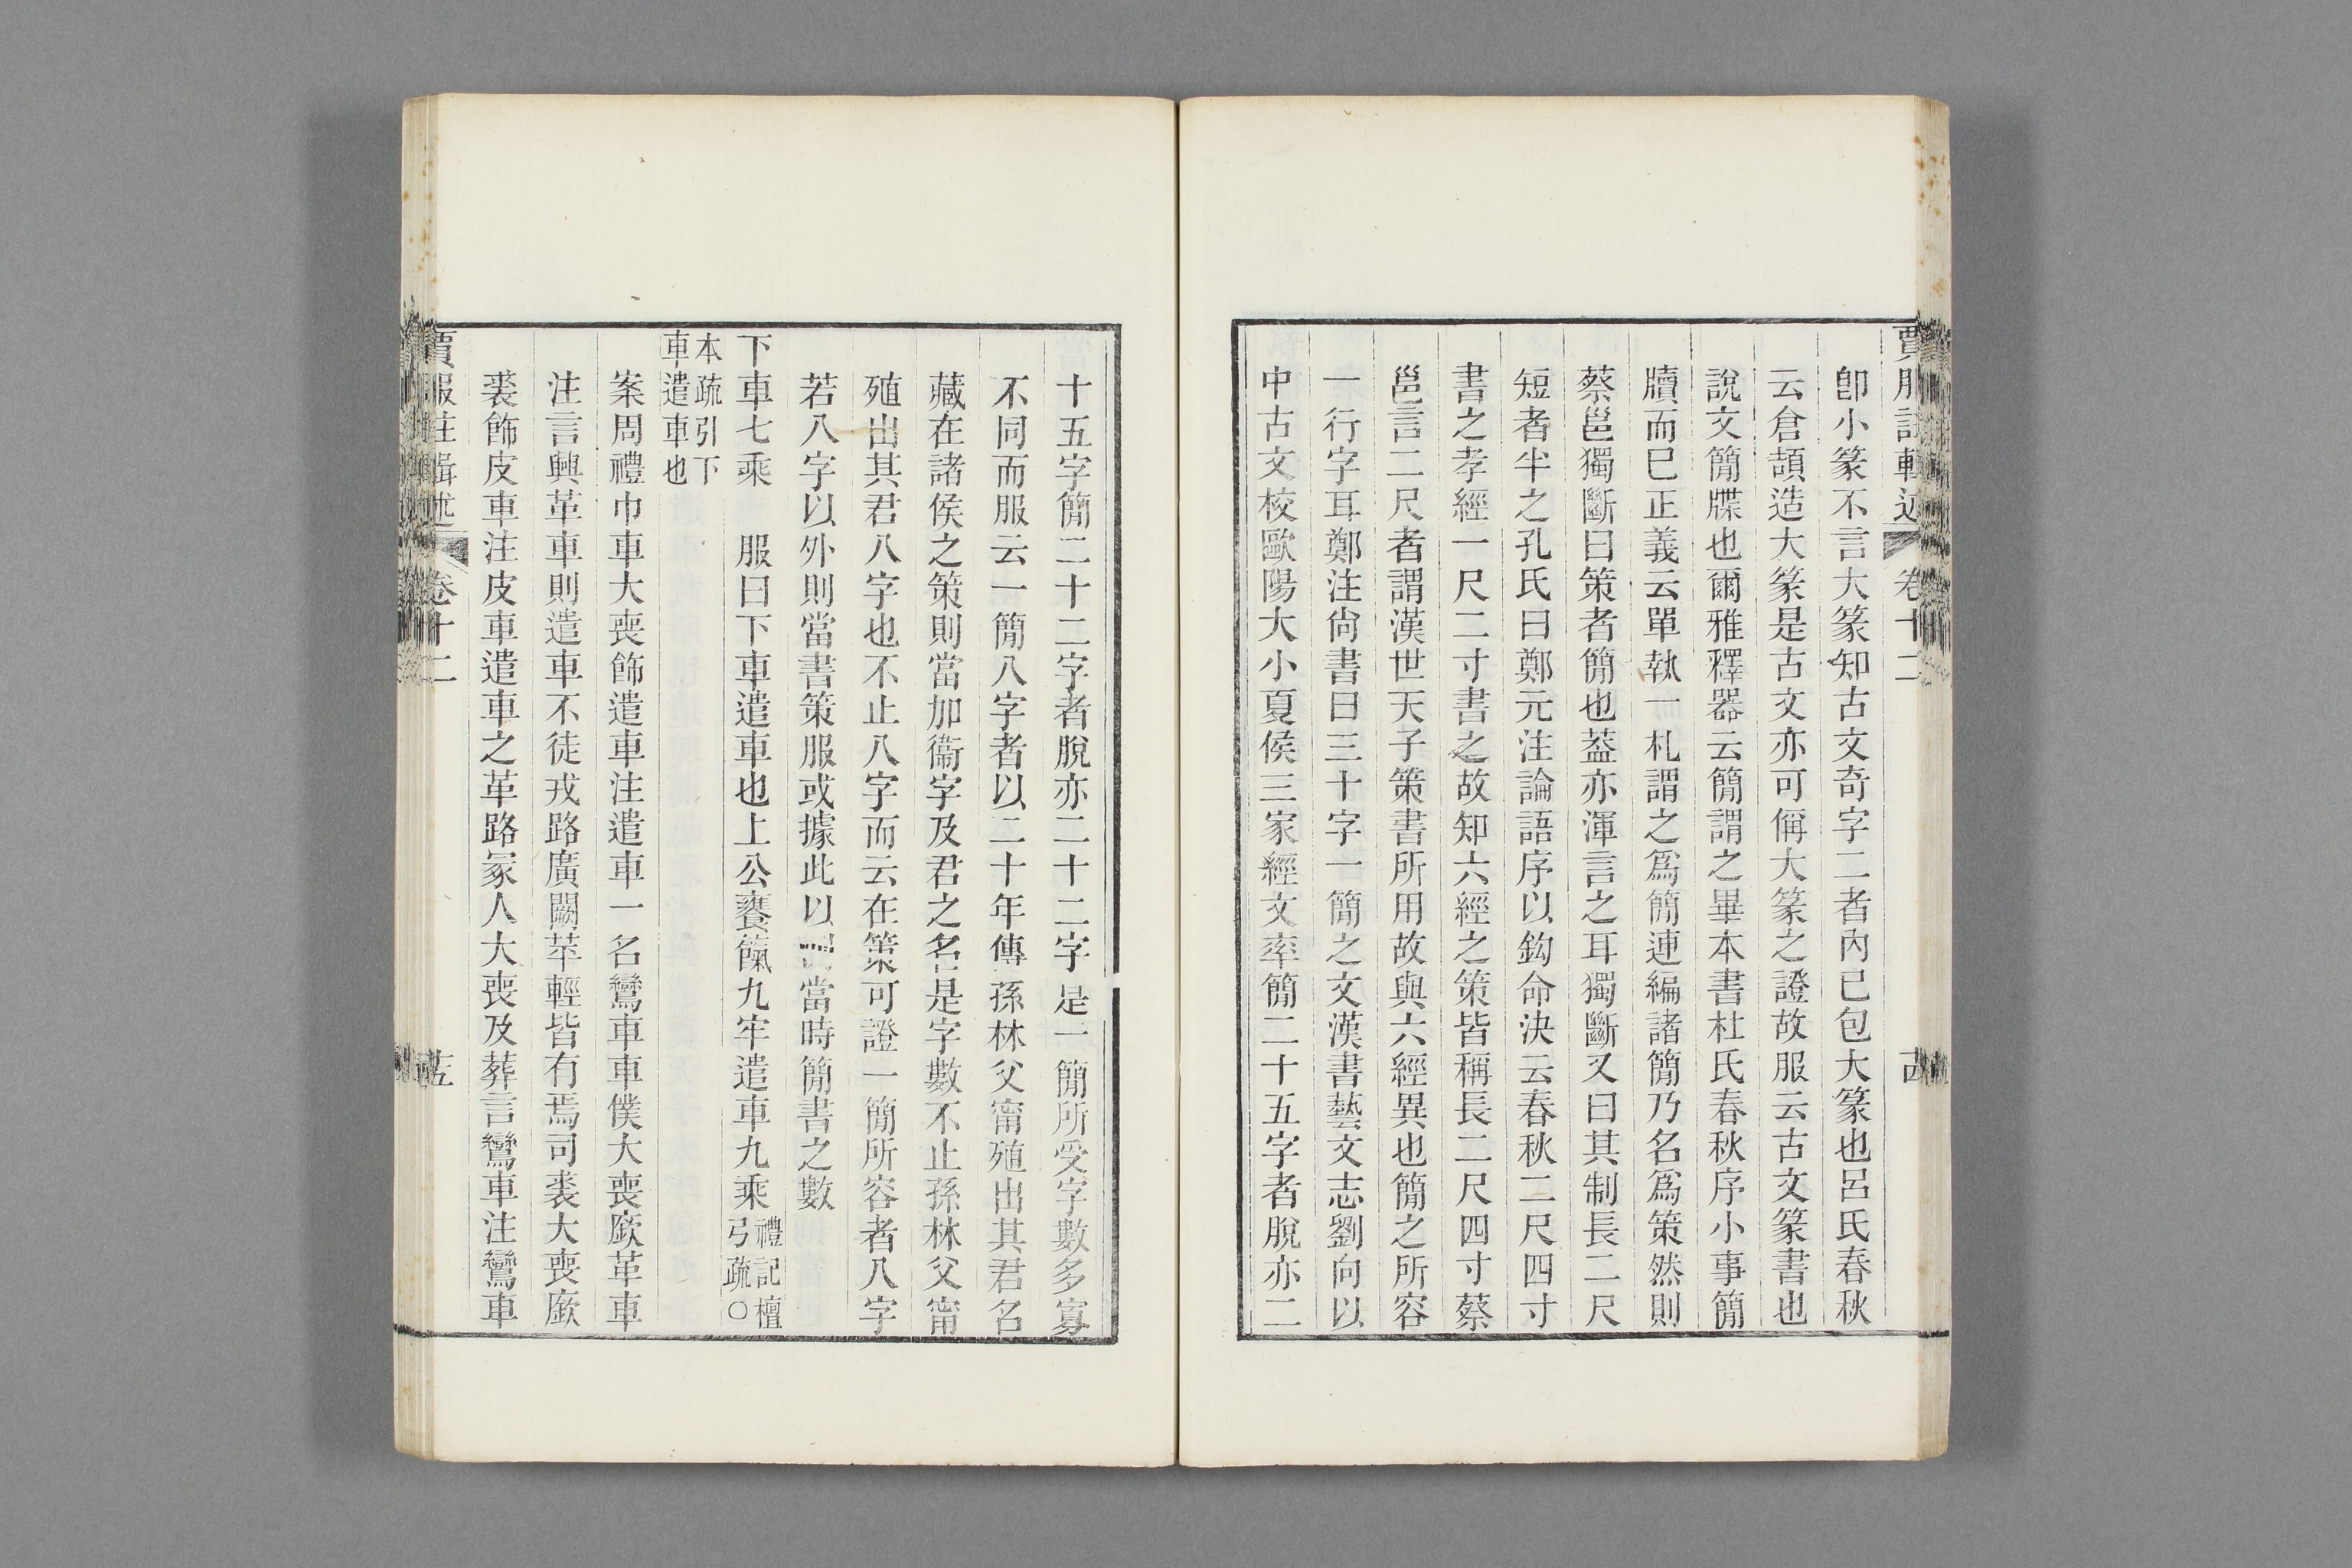 賈服註輯述 卷十二 十四
卽小篆不言大篆知古文奇字二者內已包大篆也呂氏春秋
云倉頡造大篆是古文亦可偁大篆之證故服云古文篆書也
說文簡牒也爾雅釋器云簡謂之畢本書杜氏春秋序小事簡
牘而已正義云單執一札謂之爲簡連編諸簡乃名爲策然則
蔡邕獨斷曰策者簡也葢亦渾言之耳獨斷又曰其制長二尺
短者半之孔氏曰鄭元注論語序以鈎命決云春秋二尺四寸
書之孝經一尺二寸書之故知六經之策皆稱長二尺四寸蔡
邕言二尺者謂漢世天子策書所用故與六經異也簡之所容
一行字耳鄭注尙書曰三十字一簡之文漢書藝文志劉向以
中古文校歐陽大小夏侯三家經文率簡二十五字者脫亦二
十五字簡二十二字者脫亦二十二字是一簡所受字數多寡
不同而服云一簡八字者以二十年傳孫林父甯殖出其君名
藏在諸侯之策則當加衞字及君之名是字數不止孫林父甯
殖出其君八字也不止八字而云在策可證一簡所容者八字
若八字以外則當書策服或據此以當時簡書之數
下車七乘 服曰下車遣車也上公饔餼九牢遣車九乘 禮記檀弓疏○
本疏引下車遣車也
案周禮巾車大喪飾遣車注遣車一名鸞車車僕大喪廞革車
注言興革車則遣車不徒戎路廣闕苹輕皆有焉司裘大喪廞
裘飾皮車注皮車遣車之革路冢人大喪及葬言鸞車注鸞車
賈服註輯述 卷十二 十五